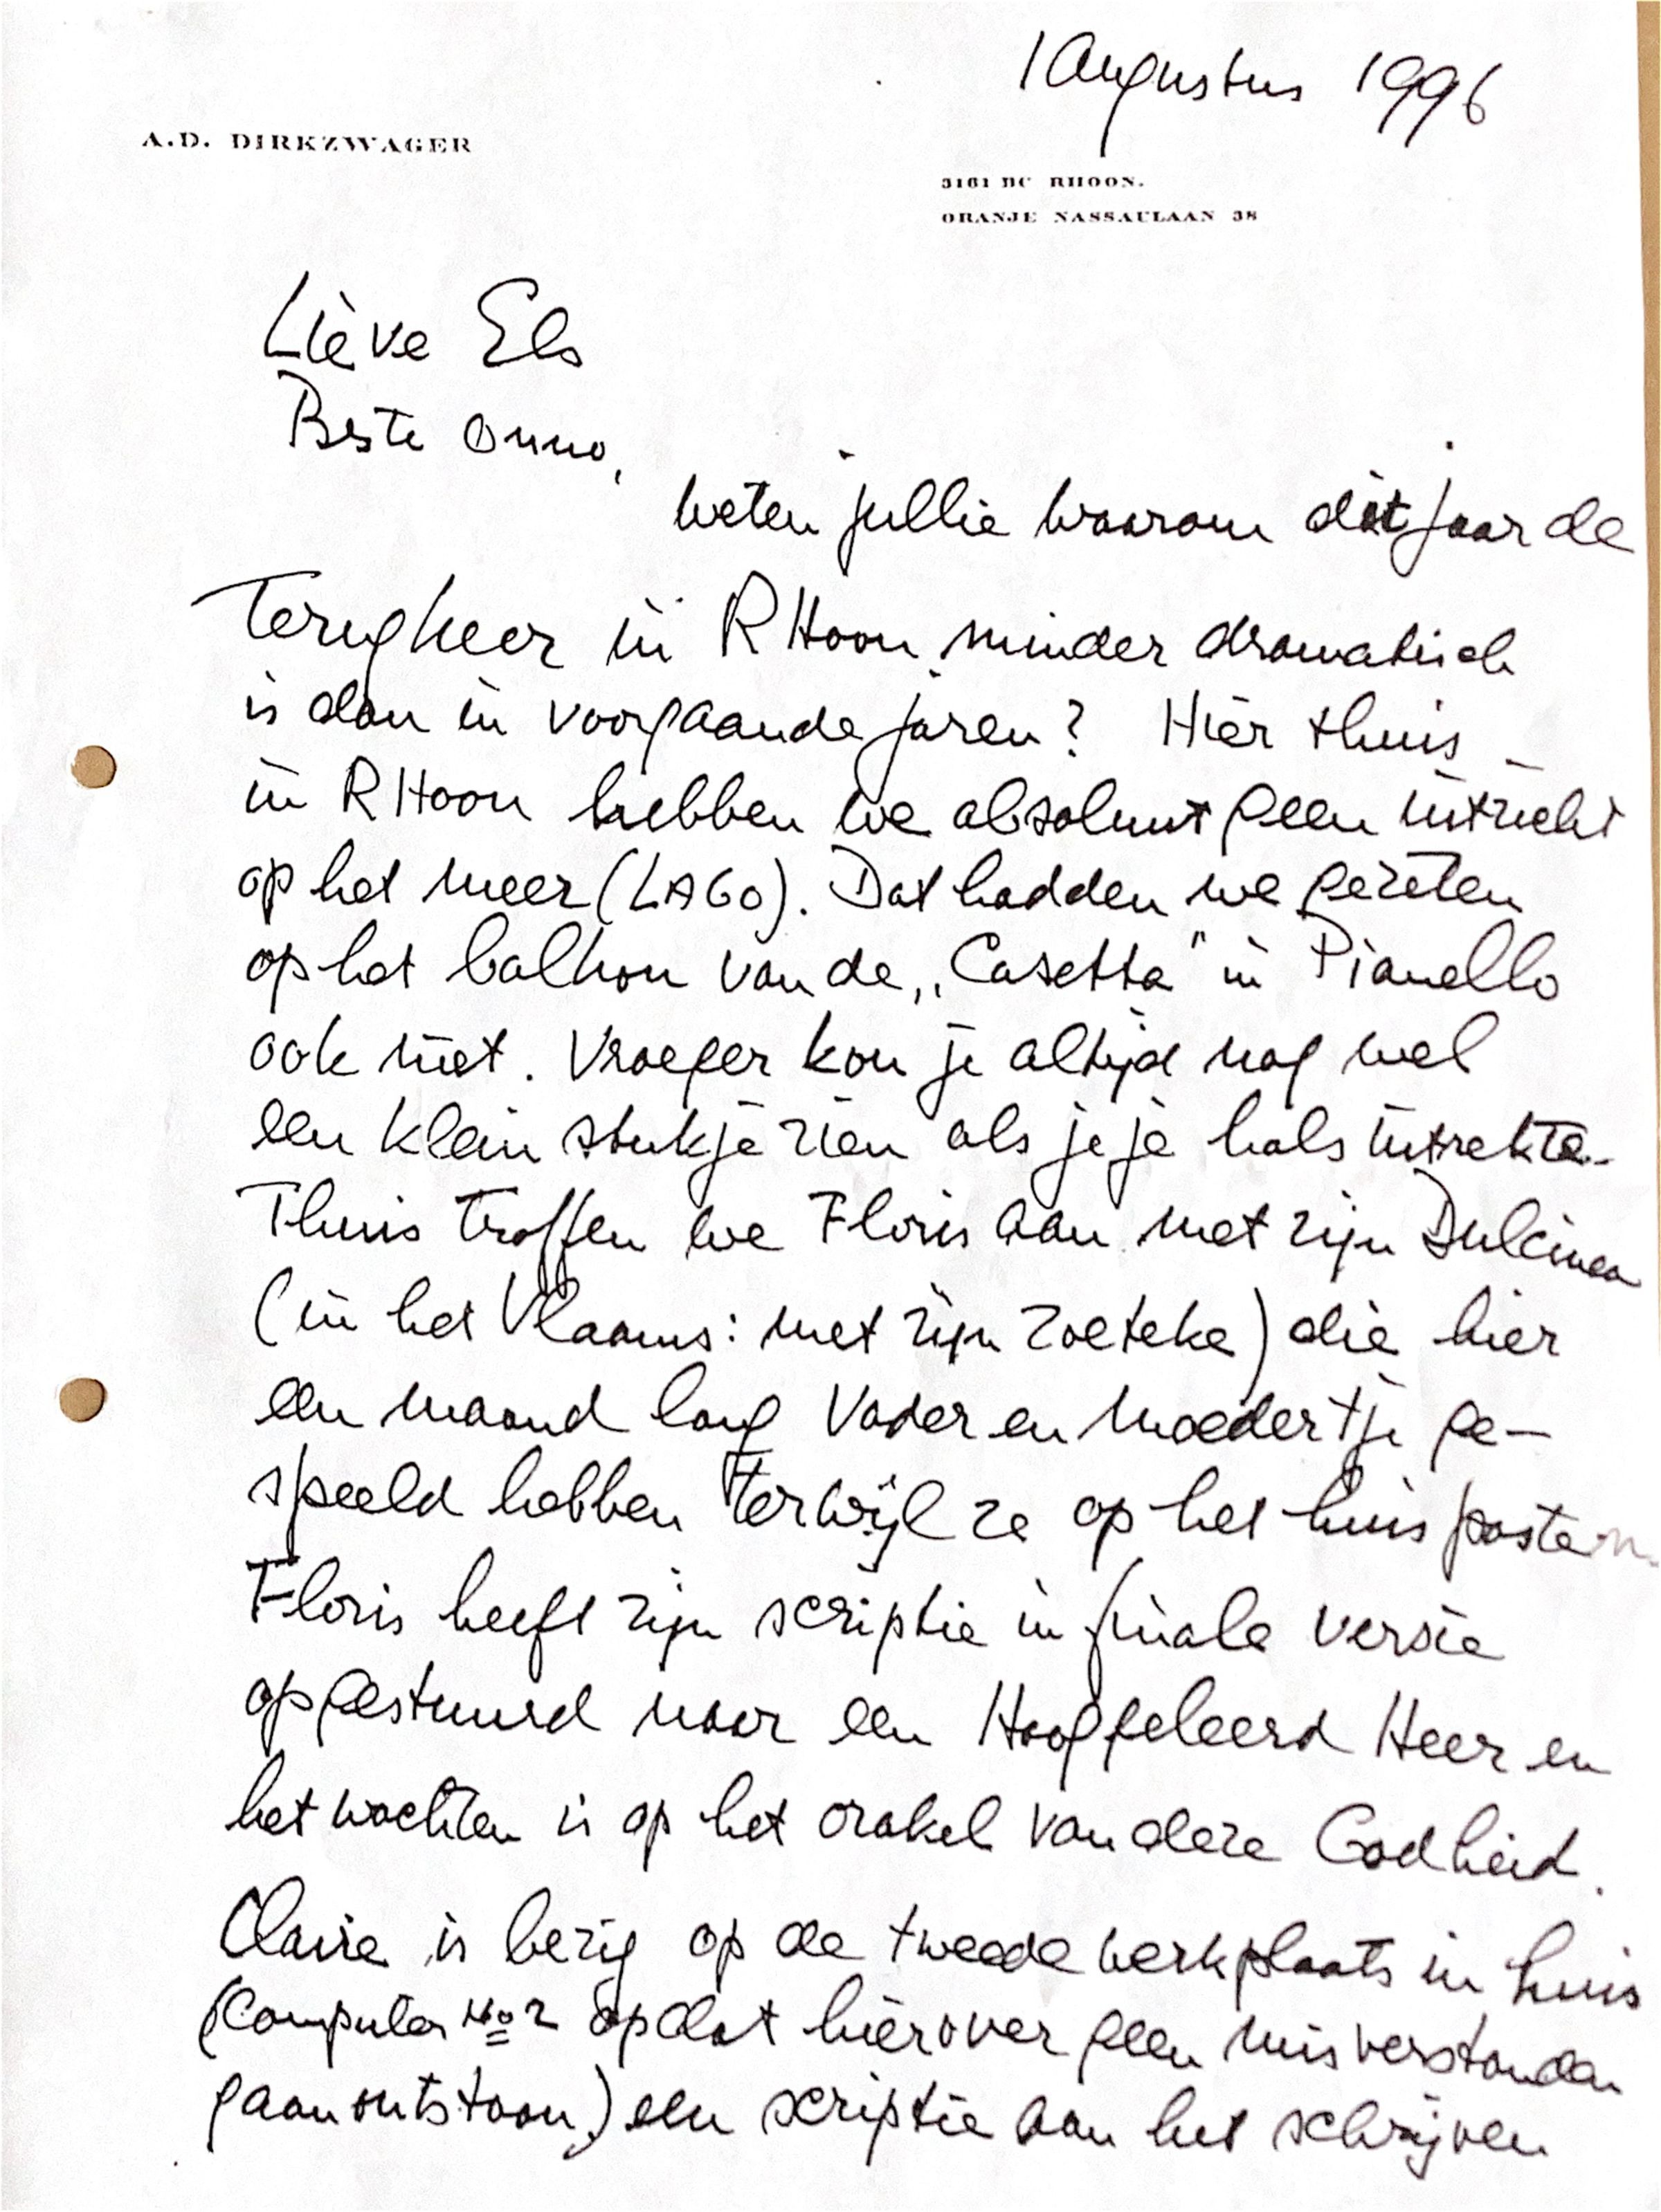 1 Augustus 1996
A.D. DIRKZWAGER
3161 BC RHOON.
ORANJE NASSAULAAN 38
Lieve Els
Beste Onno,
weten jullie waarom dit jaar de
terugkeer in RHoon minder dramatisch
is dan in voorgaande jaren? Hier thuis
in RHoon hebben we absoluut geen uitzicht
op het meer (LAGO). Dat hadden we gezeten
op het balkon van de „Casetta" in Pianello
ook niet. Vroeger kon je altijd nog wel
een klein stukje zien als je je hals uitrekte.
Thuis troffen we Floris aan met zijn Dulcinea
(in het Vlaams: met zijn zoeteke) die hier
een maand lang Vader en Moedertje ge-
speeld hebben terwijl ze op het huis pasten.
Floris heeft zijn scriptie in finale versie
opgestuurd naar een Hooggeleerd Heer en
het wachten is op het orakel van deze Godheid.
Claire is bezig op de tweede werkplaats in huis
(Computer No 2 opdat hierover geen misverstanden
gaan ontstaan) een scriptie aan het schrijven